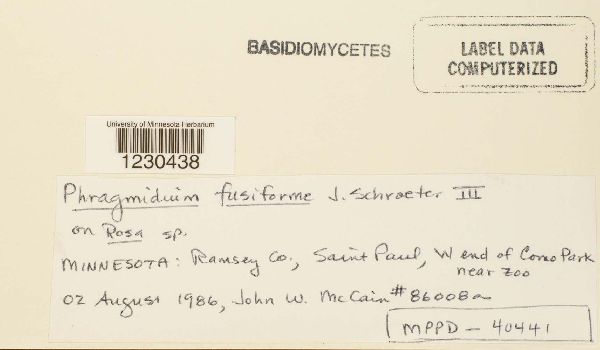 BASIDIOMYCETES
LABEL DATA
COMPUTERIZED
University of Minnesota Herbarium
1230438
Phragmidium fusiforme J. Schroeter III
on Rosa sp.
MINNESOTA: Ramsey Co., Saint Paul, W end of Como Park
near zoo
02 August 1986, John W. McCain #86008a
MPPD - 40441